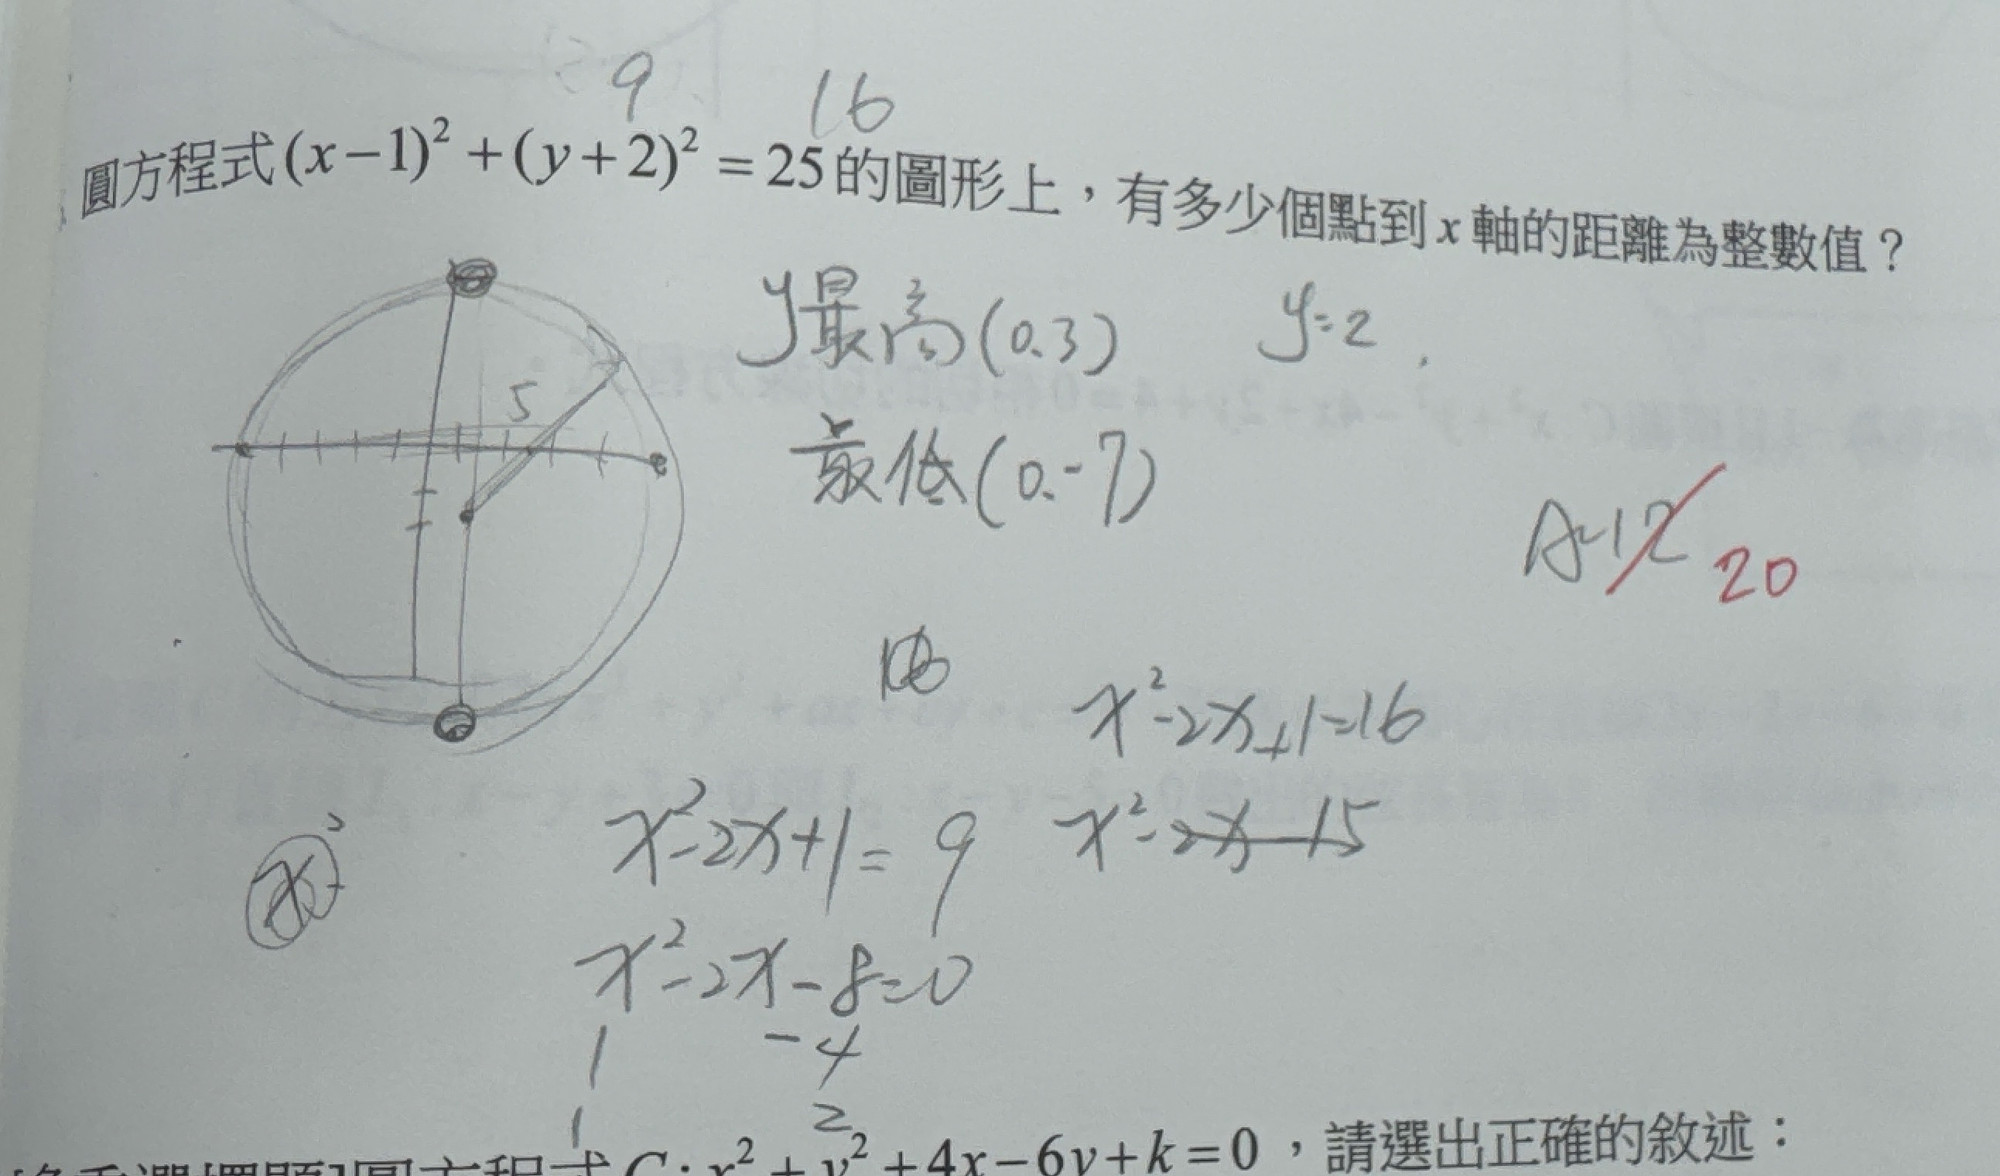 9 16
圓方程式(x−1)² + (y+2)² = 25的圖形上，有多少個點到x軸的距離為整數值？
y最高(0.3) y=2
5
最低(0.-7)
A=12 20
x²-2x+1=16
x²-2x+1=9 x²-2x-15
x²-2x-8=0
1 -4
1 2
圓方程式C: x² + y² + 4x − 6y + k = 0，請選出正確的敘述：